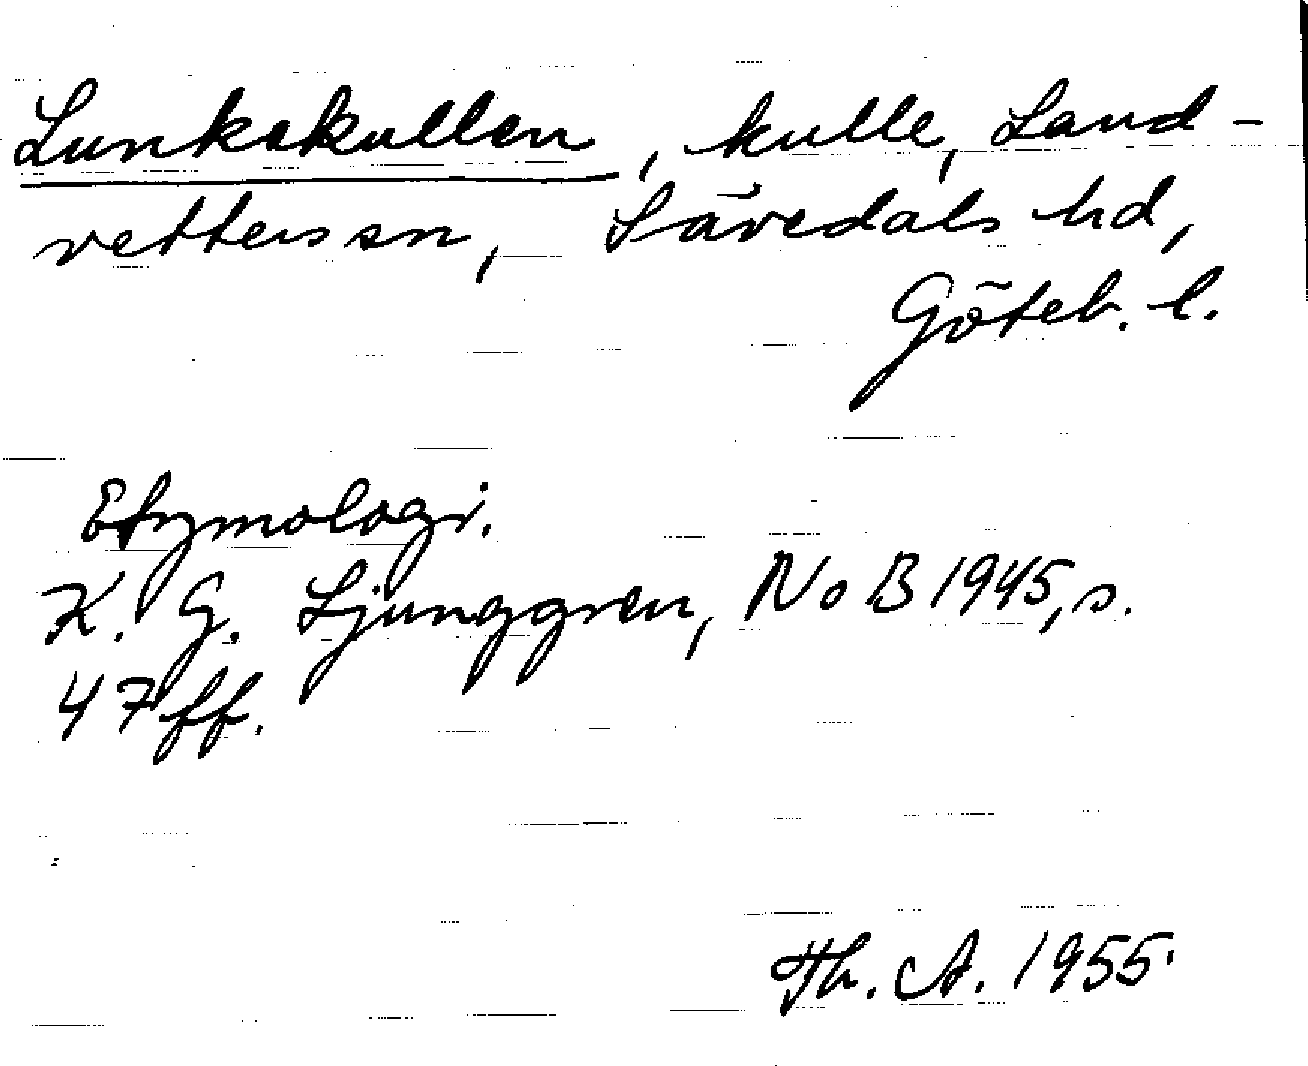 Lunkekullen, kulle, Land-
vetters sn, Sävedals hd,
Göteb. l.
Etymologi.
K. G. Ljunggren, NoB 1945, s.
47 ff.
Th. A. 1955.